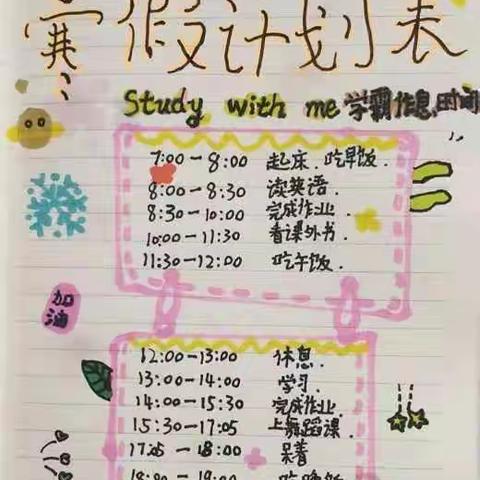 寒假计划表
Study with me 学霸作息时间
7:00-8:00 起床.吃早饭.
8:00-8:30 读英语.
8:30-10:00 完成作业.
10:00-11:30 看课外书.
11:30-12:00 吃午饭.
加油
12:00-13:00 休息.
13:00-14:00 学习.
14:00-15:30 完成作业.
15:30-17:05 上舞蹈课.
17:05-18:00 呆着
18:00-19:00 吃晚饭